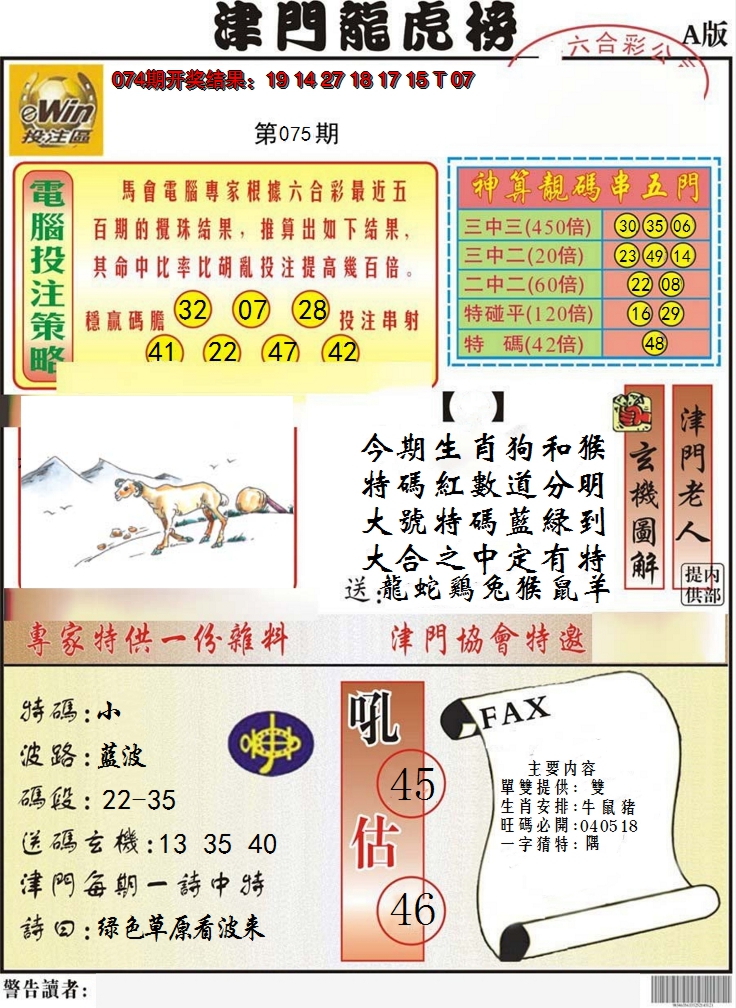 津門龍虎榜
A版
六合彩公
074期开奖结果：19 14 27 18 17 15 T 07
eWin
投注區
第075期
電腦投注策略
馬會電腦專家根據六合彩最近五
百期的攪珠结果，推算出如下结果，
其命中比率比胡亂投注提高幾百倍。
穩贏碼膽 32 07 28 投注串射
41 22 47 42
神算靚碼串五門
三中三(450倍) 30 35 06
三中二(20倍) 23 49 14
二中二(60倍) 22 08
特碰平(120倍) 16 29
特 碼(42倍) 48
【 】
今期生肖狗和猴
特碼紅數道分明
大號特碼藍綠到
大合之中定有特
送:龍蛇鷄兔猴鼠羊
玄機圖解
津門老人
内部提供
專家特供一份雜料
津門協會特邀
特碼:小
波路:藍波
碼段:22-35
送碼玄機:13 35 40
津門每期一詩中特
詩曰:绿色草原看波来
吼
45
估
46
FAX
主要内容
單雙提供: 雙
生肖安排:牛鼠豬
旺碼必開:040518
一字猜特: 隅
警告讀者: